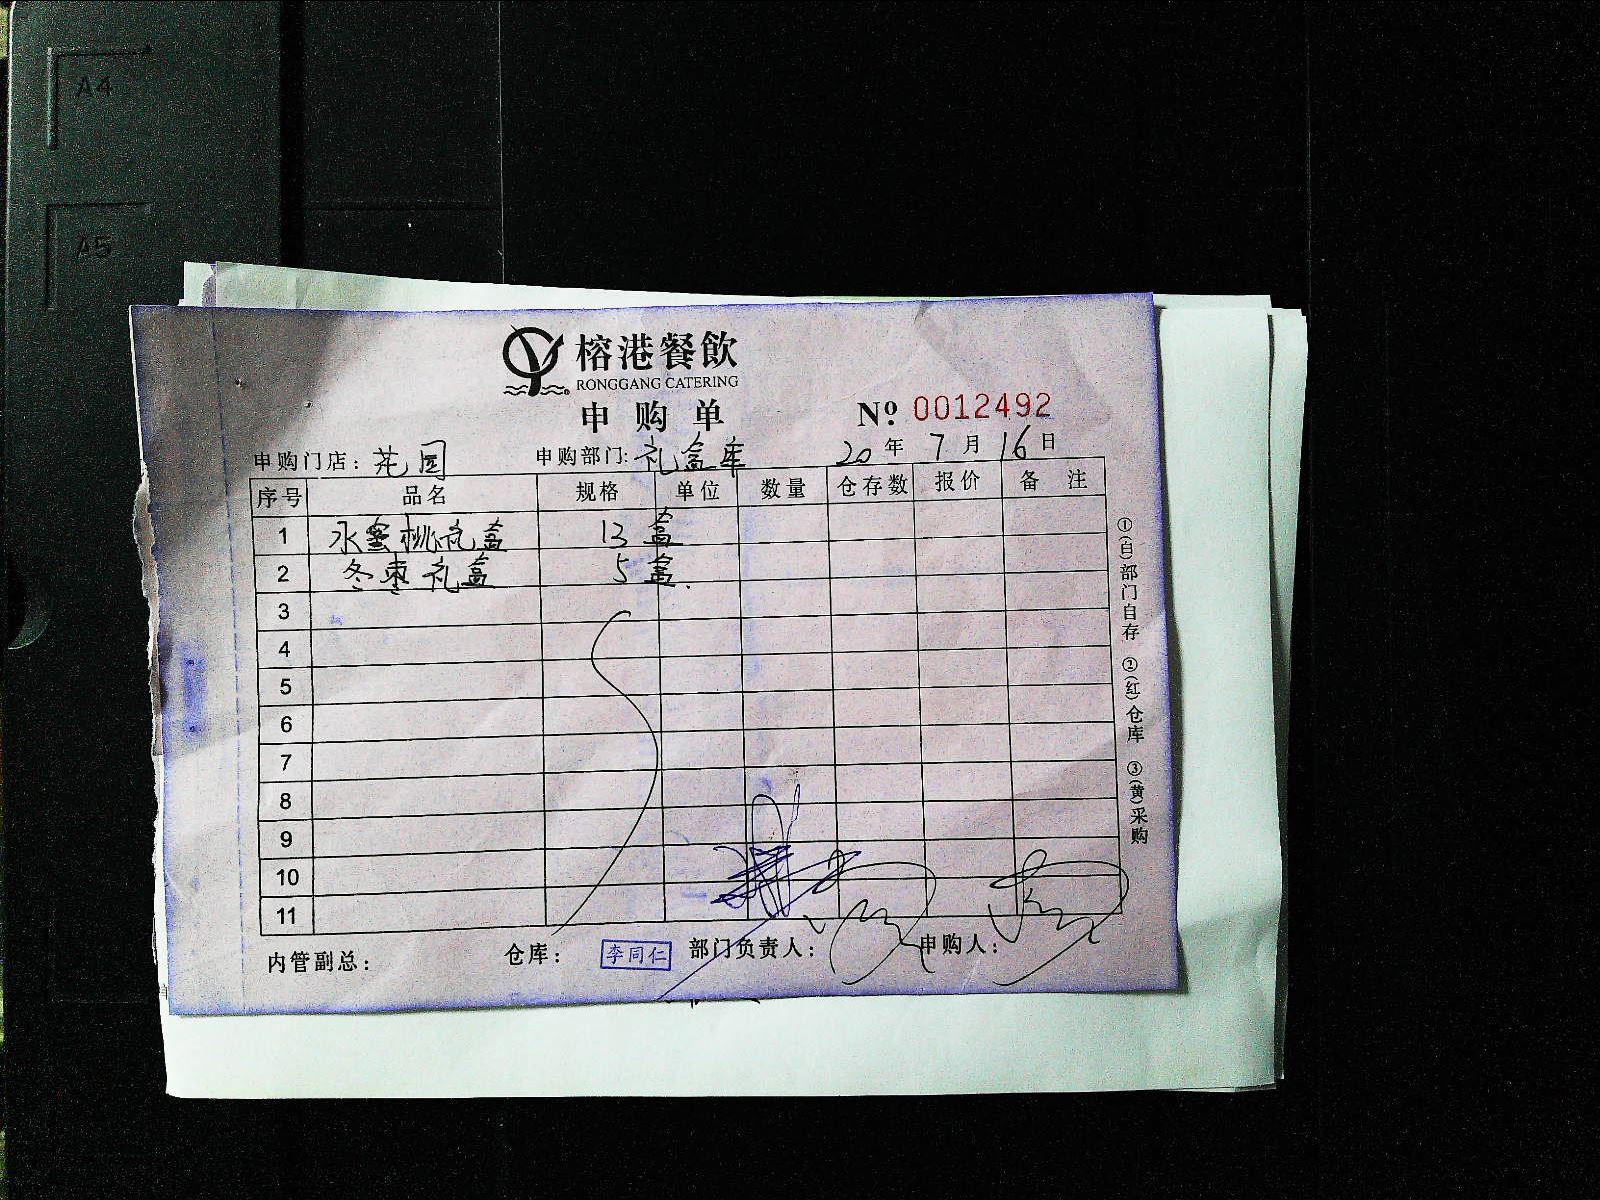 A4
A5
榕港餐飲
RONGGANG CATERING
申购单 Nº 0012492
申购门店：花园 申购部门：礼盒库 20年7月16日
序号 品名 规格 单位 数量 仓存数 报价 备注
1 水蜜桃礼盒 13 盒
2 冬枣礼盒 5 盒.
3
4
5
6
7
8
9
10
11
内管副总： 仓库： 李同仁 部门负责人： 申购人：
①(白)部门自存 ②(红)仓库 ③(黄)采购